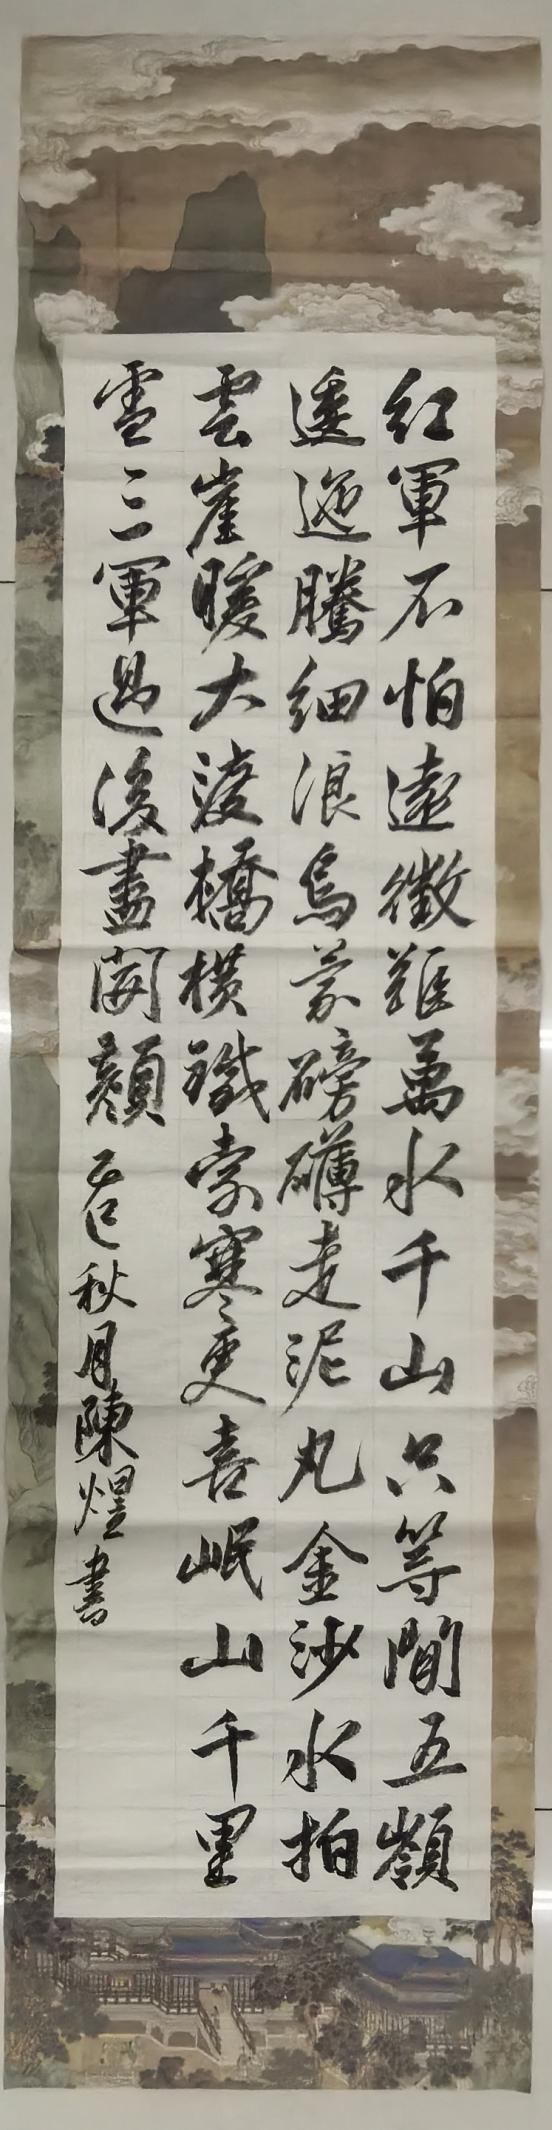 紅軍不怕遠徵難萬水千山只等閒五嶺
逶迤騰細浪烏蒙磅礴走泥丸金沙水拍
雲崖暖大渡橋橫鐵索寒更喜岷山千里
雪三軍過後盡開顏 乙巳秋月陳煜書